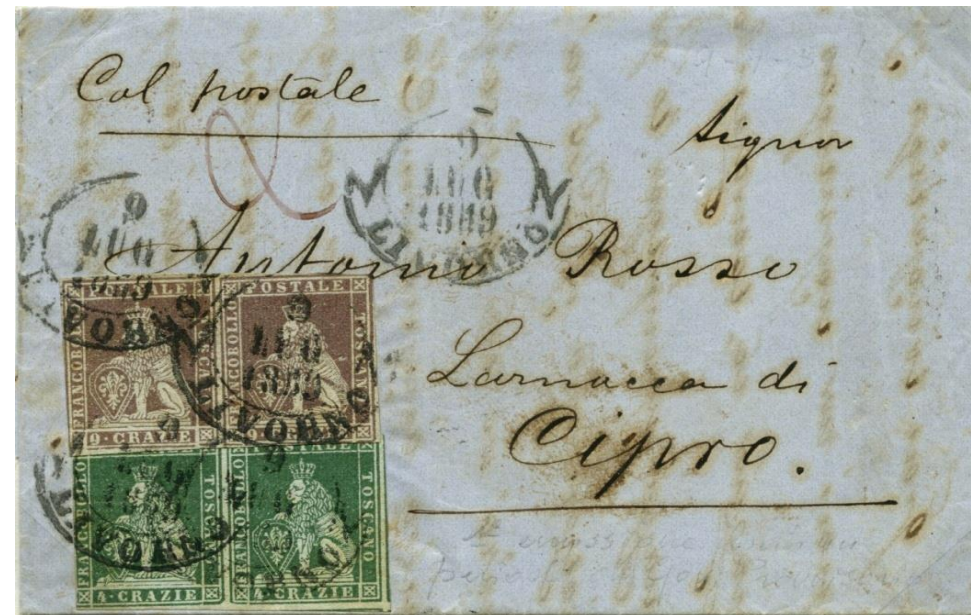 Col postale
Signor
Antonio Rosso
Larnacca di
Cipro.
2
9
LUG
1859
LIVORNO
9
LUG
LIVORNO
FRANCOBOLLO POSTALE TOSCANO
9 · CRAZIE
FRANCOBOLLO POSTALE TOSCANO
9
LUG
1859
LIVORNO
FRANCOBOLLO POSTALE TOSCANO
4 · CRAZIE
FRANCOBOLLO POSTALE TOSCANO
4 · CRAZIE
LIVORNO